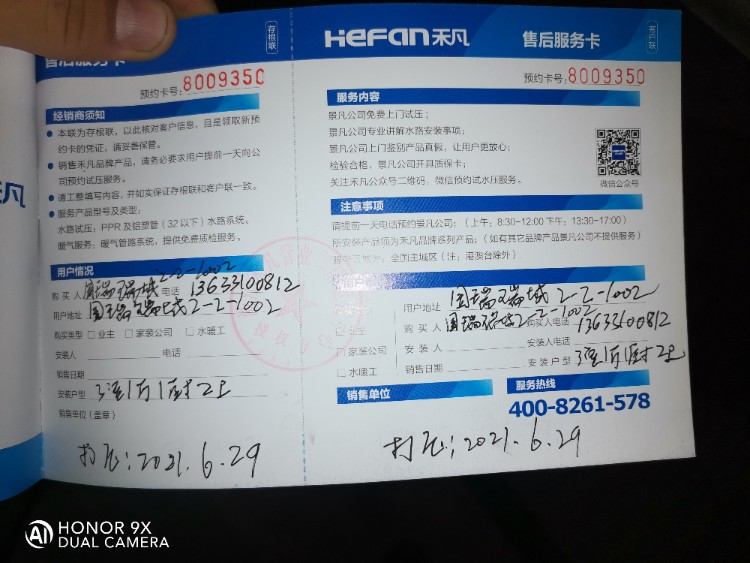 售后服务卡
存根联
预约卡号:8009350
经销商须知
● 本联为存根联，以此核对客户信息，且是领取新预
约卡的凭证，请妥善保管。
● 销售禾凡品牌产品，请务必要求用户提前一天向公
司预约试压服务。
● 请工整填写内容，并如实保证存根联和客户联一致。
● 服务产品型号及类型：
水路试压：PPR及铝塑管（32以下）水路系统、
暖气服务：暖气管路系统，提供免费质检服务。
用户情况
购买人 国瑞瑞城2-2-1002 电话 13633100812
用户地址 国瑞瑞城2-2-1002
购买类型 □ 业主 □ 家装公司 □ 水暖工
安装人 电话
销售日期
安装户型 3室1厅1厨2卫
销售单位（盖章）
打压：2021.6.29
禾凡
HeFan禾凡
售后服务卡
客户联
预约卡号:8009350
服务内容
景凡公司免费上门试压；
景凡公司专业讲解水路安装事项；
景凡公司上门鉴别产品真假，让用户更放心；
检验合格，景凡公司开具质保卡；
关注禾凡公众号二维码，微信预约试水压服务。
微信公众号
注意事项
请提前一天电话预约景凡公司；（上午：8:30-12:00 下午：13:30-17:00）
所安装产品须为禾凡品牌系列产品；（如有其它品牌产品景凡公司不提供服务）
服务区域为：全国主城区（注：港澳台除外）
用户地址 国瑞瑞城2-2-1002
□ 业主 购买人 国瑞瑞城2-2-1002 购买人电话 13633100812
□ 家装公司 安装人 安装人电话
□ 水暖工 销售日期 安装户型 3室1厅1厨2卫
销售单位
服务热线
400-8261-578
打压：2021.6.29
HONOR 9X
DUAL CAMERA